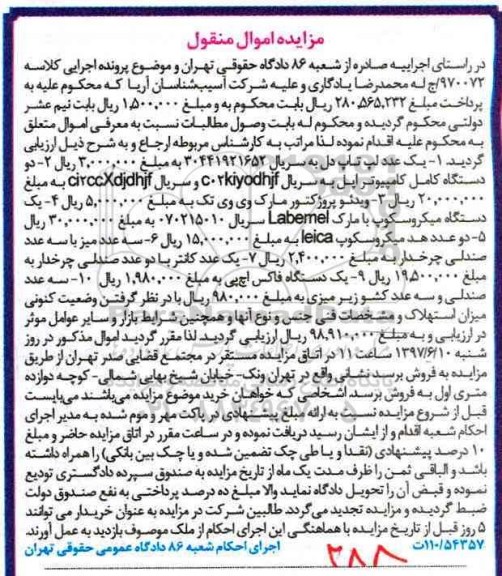 مزایده اموال منقول
در راستای اجراییه صادره از شعبه ۸۶ دادگاه حقوقی تهران و موضوع پرونده اجرایی کلاسه
۹۷۰۰۷۲/ج له محمدرضا یادگاری و علیه شرکت آسیب‌شناسان آریا که محکوم علیه به
پرداخت مبلغ ۲۸۰,۵۶۵,۲۳۲ ریال بابت محکوم به و مبلغ ۱,۵۰۰,۰۰۰ ریال بابت نیم عشر
دولتی محکوم گردیده و محکوم له بابت وصول مطالبات نسبت به معرفی اموال متعلق
به محکوم علیه اقدام نموده لذا مراتب به کارشناس مربوطه ارجاع و به شرح ذیل ارزیابی
گردید. ۱- یک عدد لپ تاپ دل به سریال ۳۰۴۴۱۹۲۱۶۵۲ به مبلغ ۳,۰۰۰,۰۰۰ ریال ۲- دو
دستگاه کامل کامپیوتر اپل به سریال c۰۲kiyodhjf و سریال ci۲ccXdjdhjf به مبلغ
۲۰,۰۰۰,۰۰۰ ریال ۳- ویدئو پروژکتور مارک وی وی تک به مبلغ ۵,۰۰۰,۰۰۰ ریال ۴- یک
دستگاه میکروسکوپ با مارک Labernel سریال ۰۷۰۲۱۵۰۱۰ به مبلغ ۳۰,۰۰۰,۰۰۰ ریال
۵- دو عدد هد میکروسکوپ leica به مبلغ ۱۵,۰۰۰,۰۰۰ ریال ۶- سه عدد میز با سه عدد
صندلی چرخدار به مبلغ ۲,۴۰۰,۰۰۰ ریال ۷- یک عدد کانتر با دو عدد صندلی چرخدار به
مبلغ ۱۹,۵۰۰,۰۰۰ ریال ۹- یک دستگاه فاکس اچ‌پی به مبلغ ۱,۹۸۰,۰۰۰ ریال ۱۰- سه عدد
صندلی و سه عدد کشو زیر میزی به مبلغ ۹۸۰,۰۰۰ ریال با در نظر گرفتن وضعیت کنونی
میزان استهلاک و مشخصات فنی جنس و نوع آنها و همچنین شرایط بازار و سایر عوامل موثر
در ارزیابی و به مبلغ ۹۸,۹۱۰,۰۰۰ ریال ارزیابی گردید. لذا مقرر گردید اموال مذکور در روز
شنبه ۱۳۹۷/۶/۱۰ ساعت ۱۱ در اتاق مزایده مستقر در مجتمع قضایی صدر تهران از طریق
مزایده به فروش برسد نشانی واقع در تهران ونک- خیابان شیخ بهایی شمالی- کوچه دوازده
متری اول به فروش برسد اشخاصی که خواهان خرید موضوع مزایده می‌باشند می‌بایست
قبل از شروع مزایده نسبت به ارائه مبلغ پیشنهادی در پاکت مهر و موم شده به مدیر اجرای
احکام شعبه اقدام و از ایشان رسید دریافت نموده و در ساعت مقرر در اتاق مزایده حاضر و مبلغ
۱۰ درصد پیشنهادی (نقدا و یا طی چک تضمین شده و یا چک بین بانکی) را همراه داشته
باشد و الباقی ثمن را ظرف مدت یک ماه از تاریخ مزایده به صندوق سپرده دادگستری تودیع
نموده و قبض آن را تحویل دادگاه نماید والا مبلغ ده درصد پرداختی به نفع صندوق دولت
ضبط گردیده و مزایده تجدید می‌گردد. طالبین شرکت در مزایده به عنوان خریدار می توانند
۵ روز قبل از تاریخ مزایده با هماهنگی این اجرای احکام از ملک موصوف بازدید به عمل آورند.
۱۱۰/۵۴۳۵۷ت اجرای احکام شعبه ۸۶ دادگاه عمومی حقوقی تهران
۲۸۸